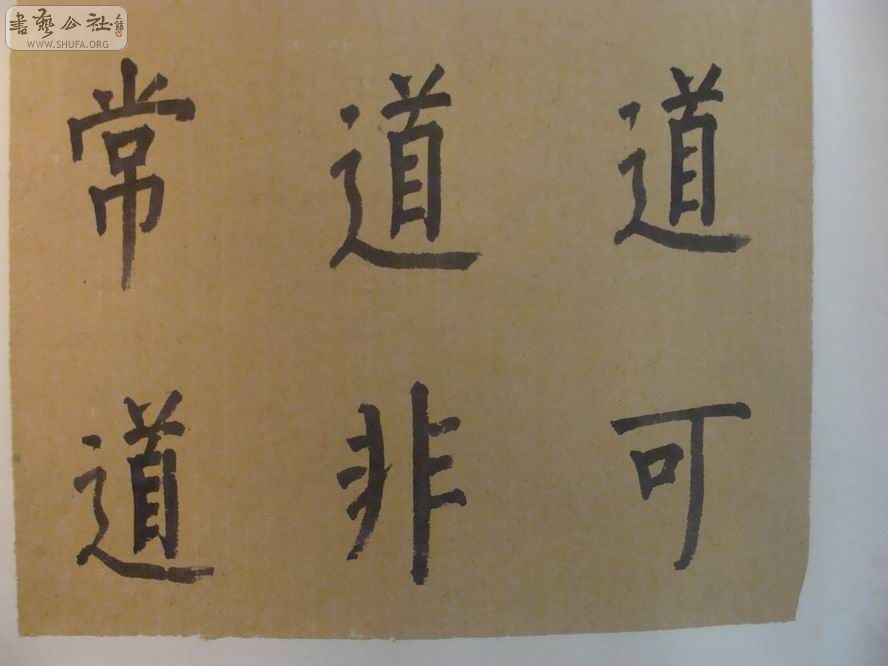 道可
道非
常道
書藝公社
WWW.SHUFA.ORG